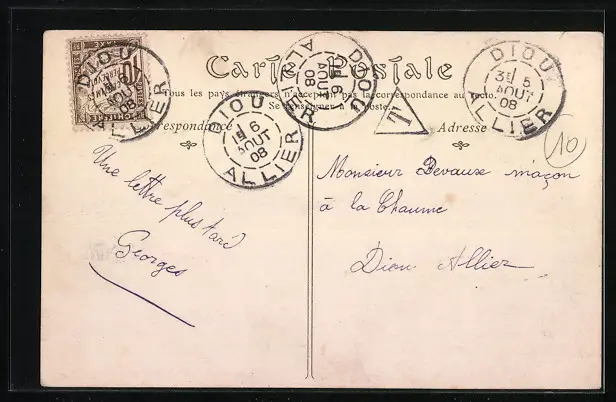 Carte Postale
Tous les pays étrangers n'acceptent pas la correspondance au recto.
Se renseigner à la poste.
Correspondance
Adresse
DIOU
1E 6
AOUT
08
ALLIER
DIOU
6
AOUT
08
ALLIER
DIOU
6
AOUT
08
ALLIER
DIOU
3E 5
AOUT
08
ALLIER
T
10
10
Une lettre plus tard
Georges
Monsieur Devaux maçon
à la Chaume
Diou Allier